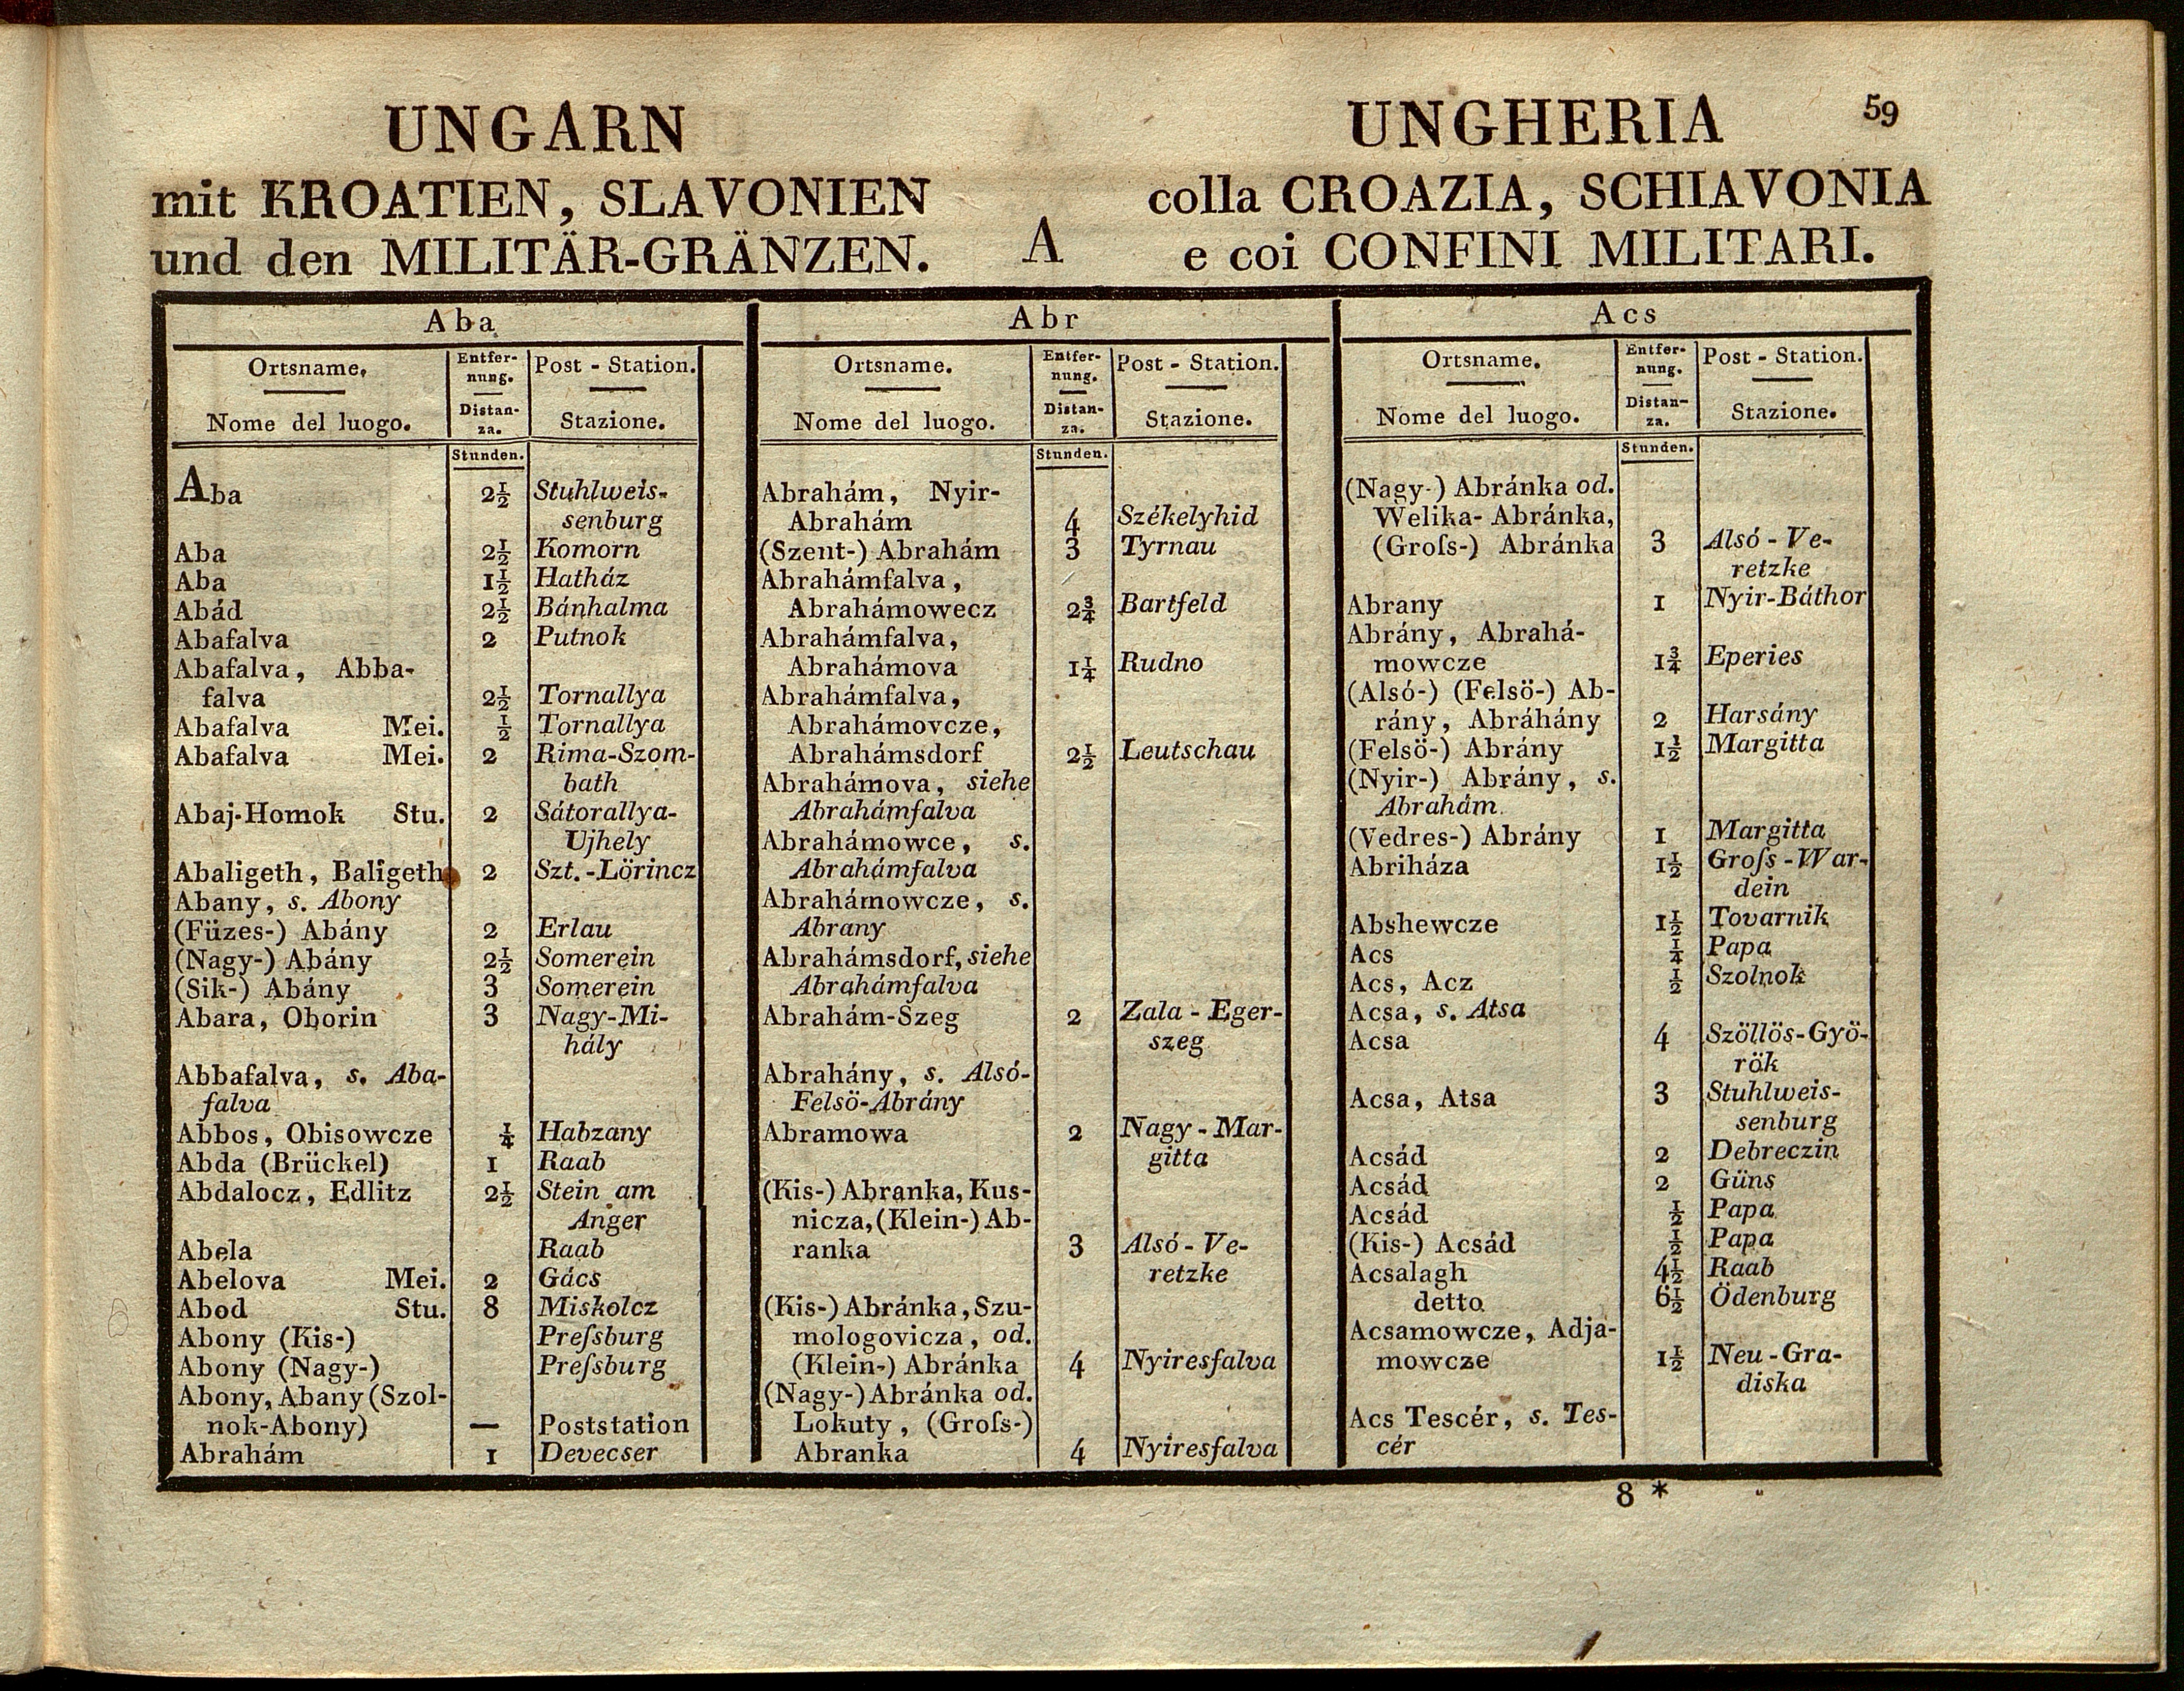 59
UNGARN
mit KROATIEN, SLAVONIEN
und den MILITÄR-GRÄNZEN.
A
UNGHERIA
colla CROAZIA, SCHIAVONIA
e coi CONFINI MILITARI.
Aba
Ortsname. Entfer- Post - Station.
nung.
Nome del luogo. Distan- Stazione.
za.
Stunden.
Aba 2½ Stuhlweis-
senburg
Aba 2½ Komorn
Aba 1½ Hatház
Abád 2½ Bánhalma
Abafalva 2 Putnok
Abafalva, Abba-
falva 2½ Tornallya
Abafalva Mei. ½ Tornallya
Abafalva Mei. 2 Rima-Szom-
bath
Abaj-Homok Stu. 2 Sátorallya-
Ujhely
Abaligeth, Baligeth 2 Szt.-Lörincz
Abany, s. Abony
(Füzes-) Abány 2 Erlau
(Nagy-) Abány 2½ Somerein
(Sik-) Abány 3 Somerein
Abara, Oborin 3 Nagy-Mi-
hály
Abbafalva, s. Aba-
falva
Abbos, Obisowcze ¼ Habzany
Abda (Brückel) 1 Raab
Abdalocz, Edlitz 2½ Stein am
Anger
Abela Raab
Abelova Mei. 2 Gács
Abod Stu. 8 Miskolcz
Abony (Kis-) Preſsburg
Abony (Nagy-) Preſsburg
Abony, Abany (Szol-
nok-Abony) — Poststation
Abrahám 1 Devecser
Abr
Ortsname. Entfer- Post - Station.
nung.
Nome del luogo. Distan- Stazione.
za.
Stunden.
Abrahám, Nyir-
Abrahám 4 Székelyhid
(Szent-) Abrahám 3 Tyrnau
Abrahámfalva,
Abrahámowecz 2¾ Bartfeld
Abrahámfalva,
Abrahámova 1¼ Rudno
Abrahámfalva,
Abrahámovcze,
Abrahámsdorf 2½ Leutschau
Abrahámova, siehe
Abrahámfalva
Abrahámowce, s.
Abrahámfalva
Abrahámowcze, s.
Abrany
Abrahámsdorf, siehe
Abrahámfalva
Abrahám-Szeg 2 Zala - Eger-
szeg
Abrahány, s. Alsó-
Felsö-Abrány
Abramowa 2 Nagy - Mar-
gitta
(Kis-) Abranka, Kus-
nicza, (Klein-) Ab-
ranka 3 Alsó - Ve-
retzke
(Kis-) Abránka, Szu-
mologovicza, od.
(Klein-) Abránka 4 Nyiresfalva
(Nagy-) Abránka od.
Lokuty, (Groſs-)
Abranka 4 Nyiresfalva
Acs
Ortsname. Entfer- Post - Station.
nung.
Nome del luogo. Distan- Stazione.
za.
Stunden.
(Nagy-) Abránka od.
Welika- Abránka,
(Groſs-) Abránka 3 Alsó - Ve-
retzke
Abrany 1 Nyir-Báthor
Abrány, Abrahá-
mowcze 1¾ Eperies
(Alsó-) (Felsö-) Ab-
rány, Abráhány 2 Harsány
(Felsö-) Abrány 1½ Margitta
(Nyir-) Abrány, s.
Abrahám.
(Vedres-) Abrány 1 Margitta
Abriháza 1½ Groſs - War-
dein
Abshewcze 1½ Tovarnik
Acs ¼ Papa
Acs, Acz ½ Szolnok
Acsa, s. Atsa
Acsa 4 Szöllös-Gyö-
rök
Acsa, Atsa 3 Stuhlweis-
senburg
Acsád 2 Debreczin
Acsád 2 Güns
Acsád ½ Papa
(Kis-) Acsád ½ Papa
Acsalagh 4½ Raab
detto 6½ Ödenburg
Acsamowcze, Adja-
mowcze 1½ Neu - Gra-
diska
Acs Tescér, s. Tes-
cér
8 *